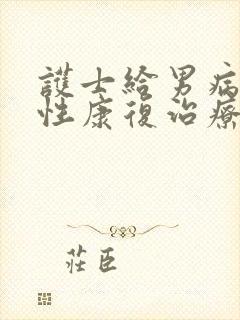 護士給男病
性康復治療
莊臣